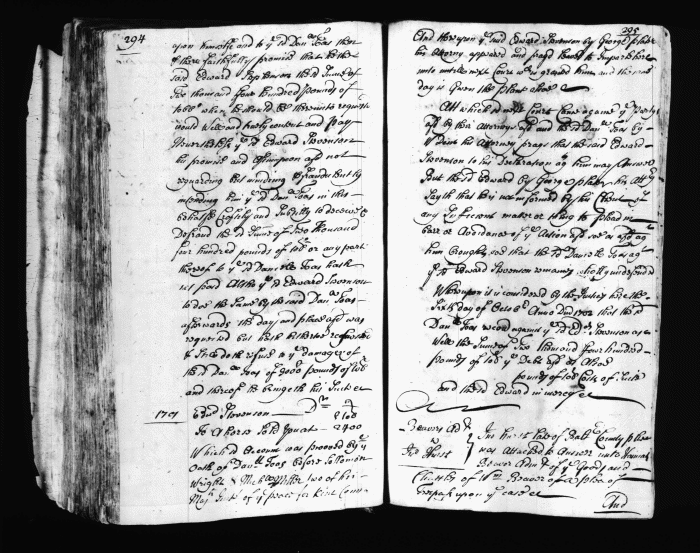 294
upon himselfe and to ye sd Danll Toas then
& there faithfully promise that he the
said Edward Stevenson the sd Sume of
Two thousand four hundred pounds of
tobo when he should be thereunto requir'd
would Well and truely content and pay
Neverthelesse ye sd Edward Stevenson
his promise and Assumpcon afd not
regarding but minding & fraudulently
intending him ye sd Danll Toas in this
behalfe Craftily and Subtilly to deceive &
Defraud the sd Sume of two thousand
four hundred pounds of tobo or any part
thereof to ye sd Daniell Toas hath
not paid Altho ye sd Edward Stevenson
to doe the Same by the said Danll Toas
afterwards the day and place afd was
requested but hath hitherto refused
& Still doth refuse to ye damage of
the sd Danll Toas of 9000 pounds of tobo
and thereof he bringeth his Suite &c
1701 Edwd Stevenson Dr
To A horse Sold you at 2400
Which sd Account was prooved by ye
Oath of Danll Toas before Solloman
Wright & Michll Miller two of his
Majts Justs of ye peace for Kent County
295
And thereupon ye said Edward Stevenson by George
his Attorny appeared and prayd Leave to Imparle here
unto untill next Court & is granted him and the same
day is given the plant alsoe &c
Att which sd next Court Came againe ye partys
afd by their Attorneys afd and the sd Danll Toas by
his Attorney prays that the said Edward
Stevenson to his Declaration agt him may Answer
But the sd Edward by George his Atty
Sayth that he is not informed by his Client of
any Sufficient matter or thing to plead in
barr or Avoidance of ye Action afd soe as afd agt
him brought, soe that the sd Daniell Toas agt
ye sd Edward Stevenson remaines wholly undefended
Whereupon it is considered by the Justices here the
Sixth day of Octobr Anno Dni 1702 that the sd
Danll Toas recover against ye sd Edwd Stevenson as
Well the Sume of two thousand four hundred
pounds of tobo ye Debt afd as Alsoe
pounds of tobo Costs of Suite
and the sd Edward in mercy &c
Beavers Admx
v
Hurst
late of County
was Attached to Answer unto Hannah
Beaver Admx of ye Goods and
Chattles of Wm Beaver of a plea of
trespass upon ye case &c
And